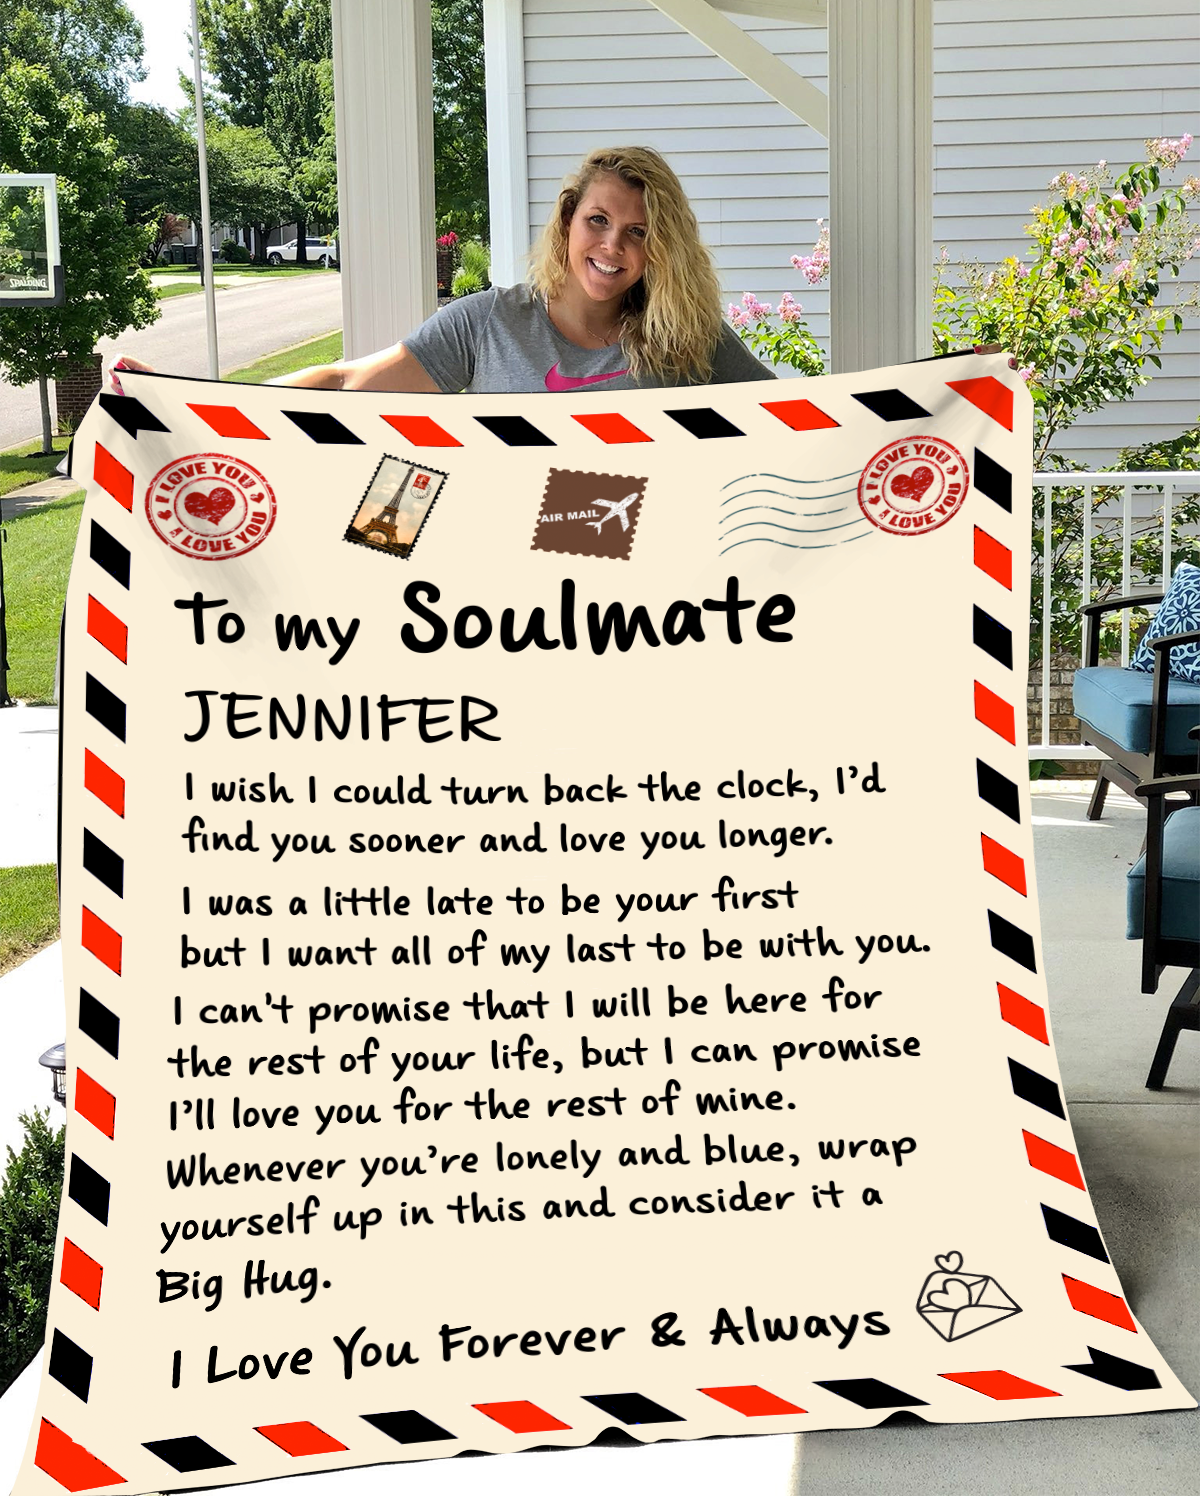 SPALDING
I LOVE YOU &
& I LOVE YOU
AIR MAIL
& I LOVE YOU &
I LOVE YOU
To my Soulmate
JENNIFER
I wish I could turn back the clock, I'd
find you sooner and love you longer.
I was a little late to be your first
but I want all of my last to be with you.
I can't promise that I will be here for
the rest of your life, but I can promise
I'll love you for the rest of mine.
Whenever you're lonely and blue, wrap
yourself up in this and consider it a
Big Hug.
I Love You Forever & Always